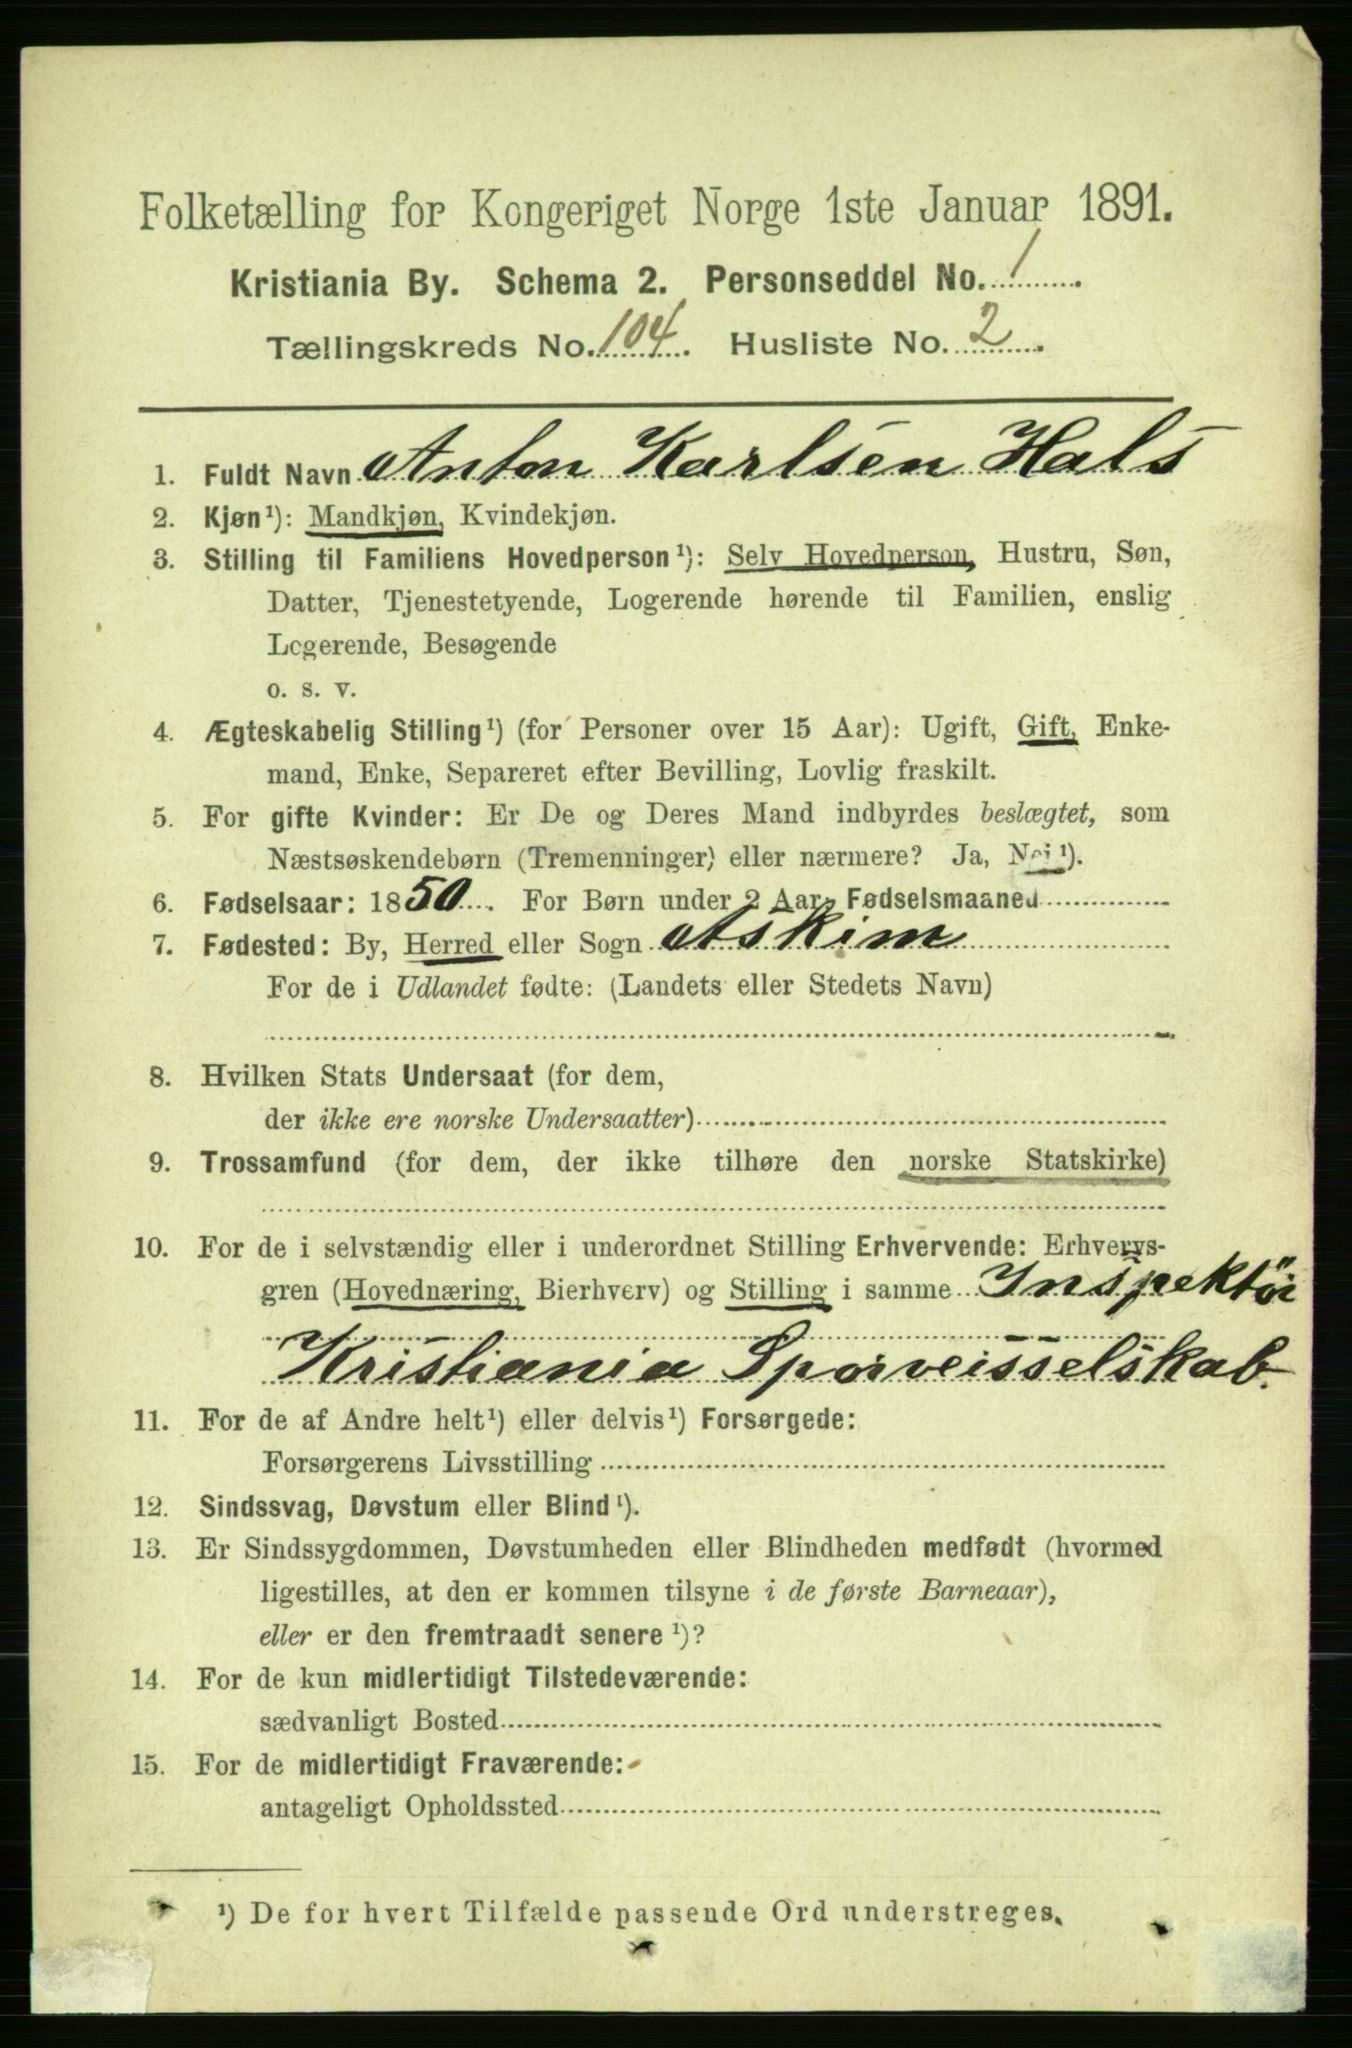 Folketælling for Kongeriget Norge 1ste Januar 1891.
Kristiania By. Schema 2. Personseddel No. 1
Tællingskreds No. 104. Husliste No. 2.
1. Fuldt Navn Anton Karlsen Hals
2. Kjøn¹): Mandkjøn, Kvindekjøn.
3. Stilling til Familiens Hovedperson¹): Selv Hovedperson, Hustru, Søn,
Datter, Tjenestetyende, Logerende hørende til Familien, enslig
Logerende, Besøgende
o. s. v.
4. Ægteskabelig Stilling¹) (for Personer over 15 Aar): Ugift, Gift, Enke-
mand, Enke, Separeret efter Bevilling, Lovlig fraskilt.
5. For gifte Kvinder: Er De og Deres Mand indbyrdes beslægtet, som
Næstsøskendebørn (Tremenninger) eller nærmere? Ja, Nei¹).
6. Fødselsaar: 1850. For Børn under 2 Aar, Fødselsmaaned
7. Fødested: By, Herred eller Sogn Askim
For de i Udlandet fødte: (Landets eller Stedets Navn)
8. Hvilken Stats Undersaat (for dem,
der ikke ere norske Undersaatter)
9. Trossamfund (for dem, der ikke tilhøre den norske Statskirke)
10. For de i selvstændig eller i underordnet Stilling Erhvervende: Erhvervs-
gren (Hovednæring, Bierhverv) og Stilling i samme Inspektör
Kristiania Sporveisselskab.
11. For de af Andre helt¹) eller delvis¹) Forsørgede:
Forsørgerens Livsstilling
12. Sindssvag, Døvstum eller Blind¹).
13. Er Sindssygdommen, Døvstumheden eller Blindheden medfødt (hvormed
ligestilles, at den er kommen tilsyne i de første Barneaar),
eller er den fremtraadt senere¹)?
14. For de kun midlertidigt Tilstedeværende:
sædvanligt Bosted
15. For de midlertidigt Fraværende:
antageligt Opholdssted
¹) De for hvert Tilfælde passende Ord understreges.